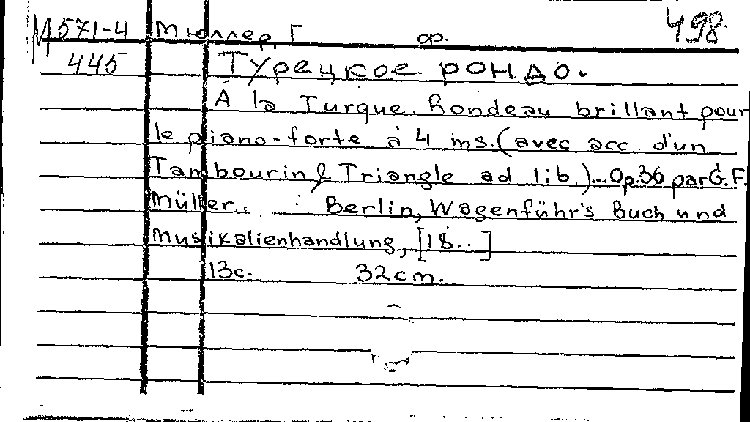 М571-4 Мюллер, Г ф. 498
445 Турецкое рондо.
A la Turque. Rondeau brillant pour
le piano-forte à 4 ms. (avec acc d'un
Tambourin & Triangle ad lib.)-Op.36 par G.F.
Müller. Berlin, Wagenführ's Buch und
Musikalienhandlung, [18..]
13c. 32cm.